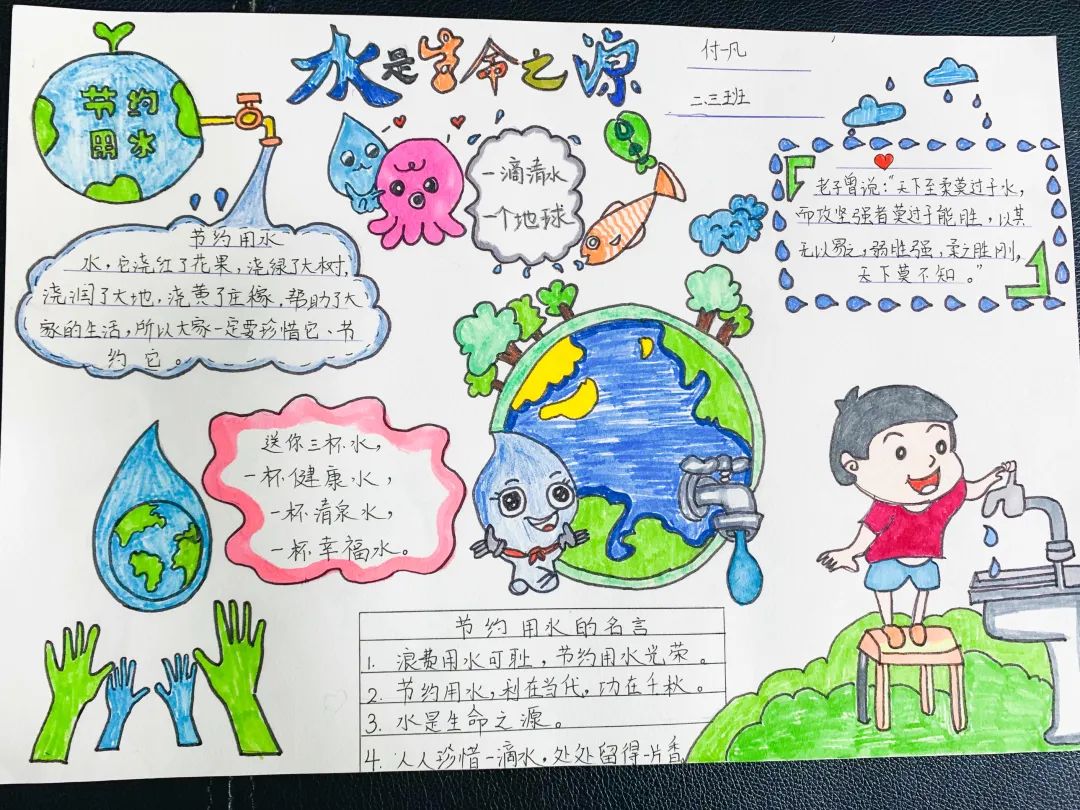 节约
用水
水是生命之源
付一凡
二.三班
一滴清水
一个地球
老子曾说:“天下至柔莫过于水,
而攻坚强者莫过于能胜,以其
无以易之,弱胜强,柔之胜刚,
天下莫不知。”
节约用水
水,它浇红了花果,浇绿了大树,
浇润了大地,浇黄了庄稼,帮助了大
家的生活,所以大家一定要珍惜它、节
约它。
送你三杯水,
一杯健康水,
一杯清泉水,
一杯幸福水。
节约用水的名言
1. 浪费用水可耻,节约用水光荣。
2. 节约用水,利在当代,功在千秋。
3. 水是生命之源。
4. 人人珍惜一滴水,处处留得一片香